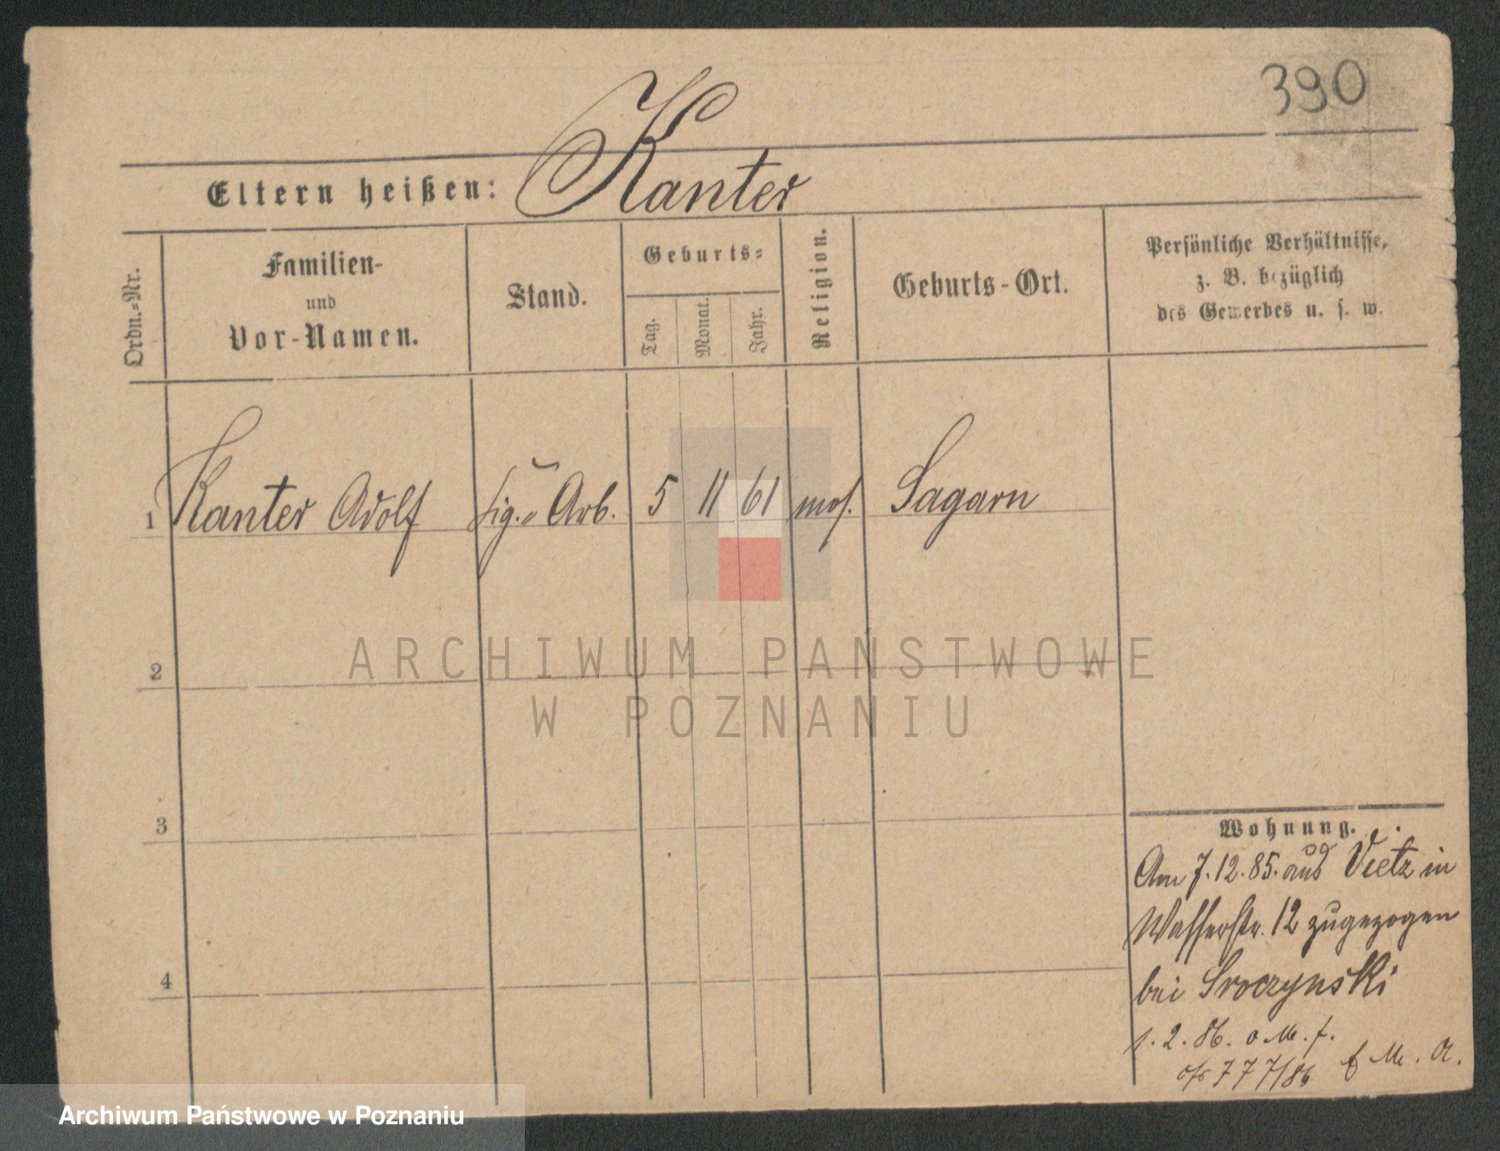 390
Eltern heißen: Kanter
Ordn.-Nr.
Familien-
und
Vor-Namen.
Stand.
Geburts-
Tag.
Monat.
Jahr.
Religion.
Geburts-Ort.
Persönliche Verhältnisse,
z. B. bezüglich
des Gewerbes u. s. w.
1 Kanter Adolf Zig. Arb. 5 11 61 mos. Sagarn
2
ARCHIWUM PAŃSTWOWE
W POZNANIU
3
4
Wohnung.
Am 7.12.85. aus Vietz in
Wasserstr. 12 zugezogen
bei Sroczynski
1. 2. 86. o. M. f.
7 7 7/86
M. A.
Archiwum Państwowe w Poznaniu